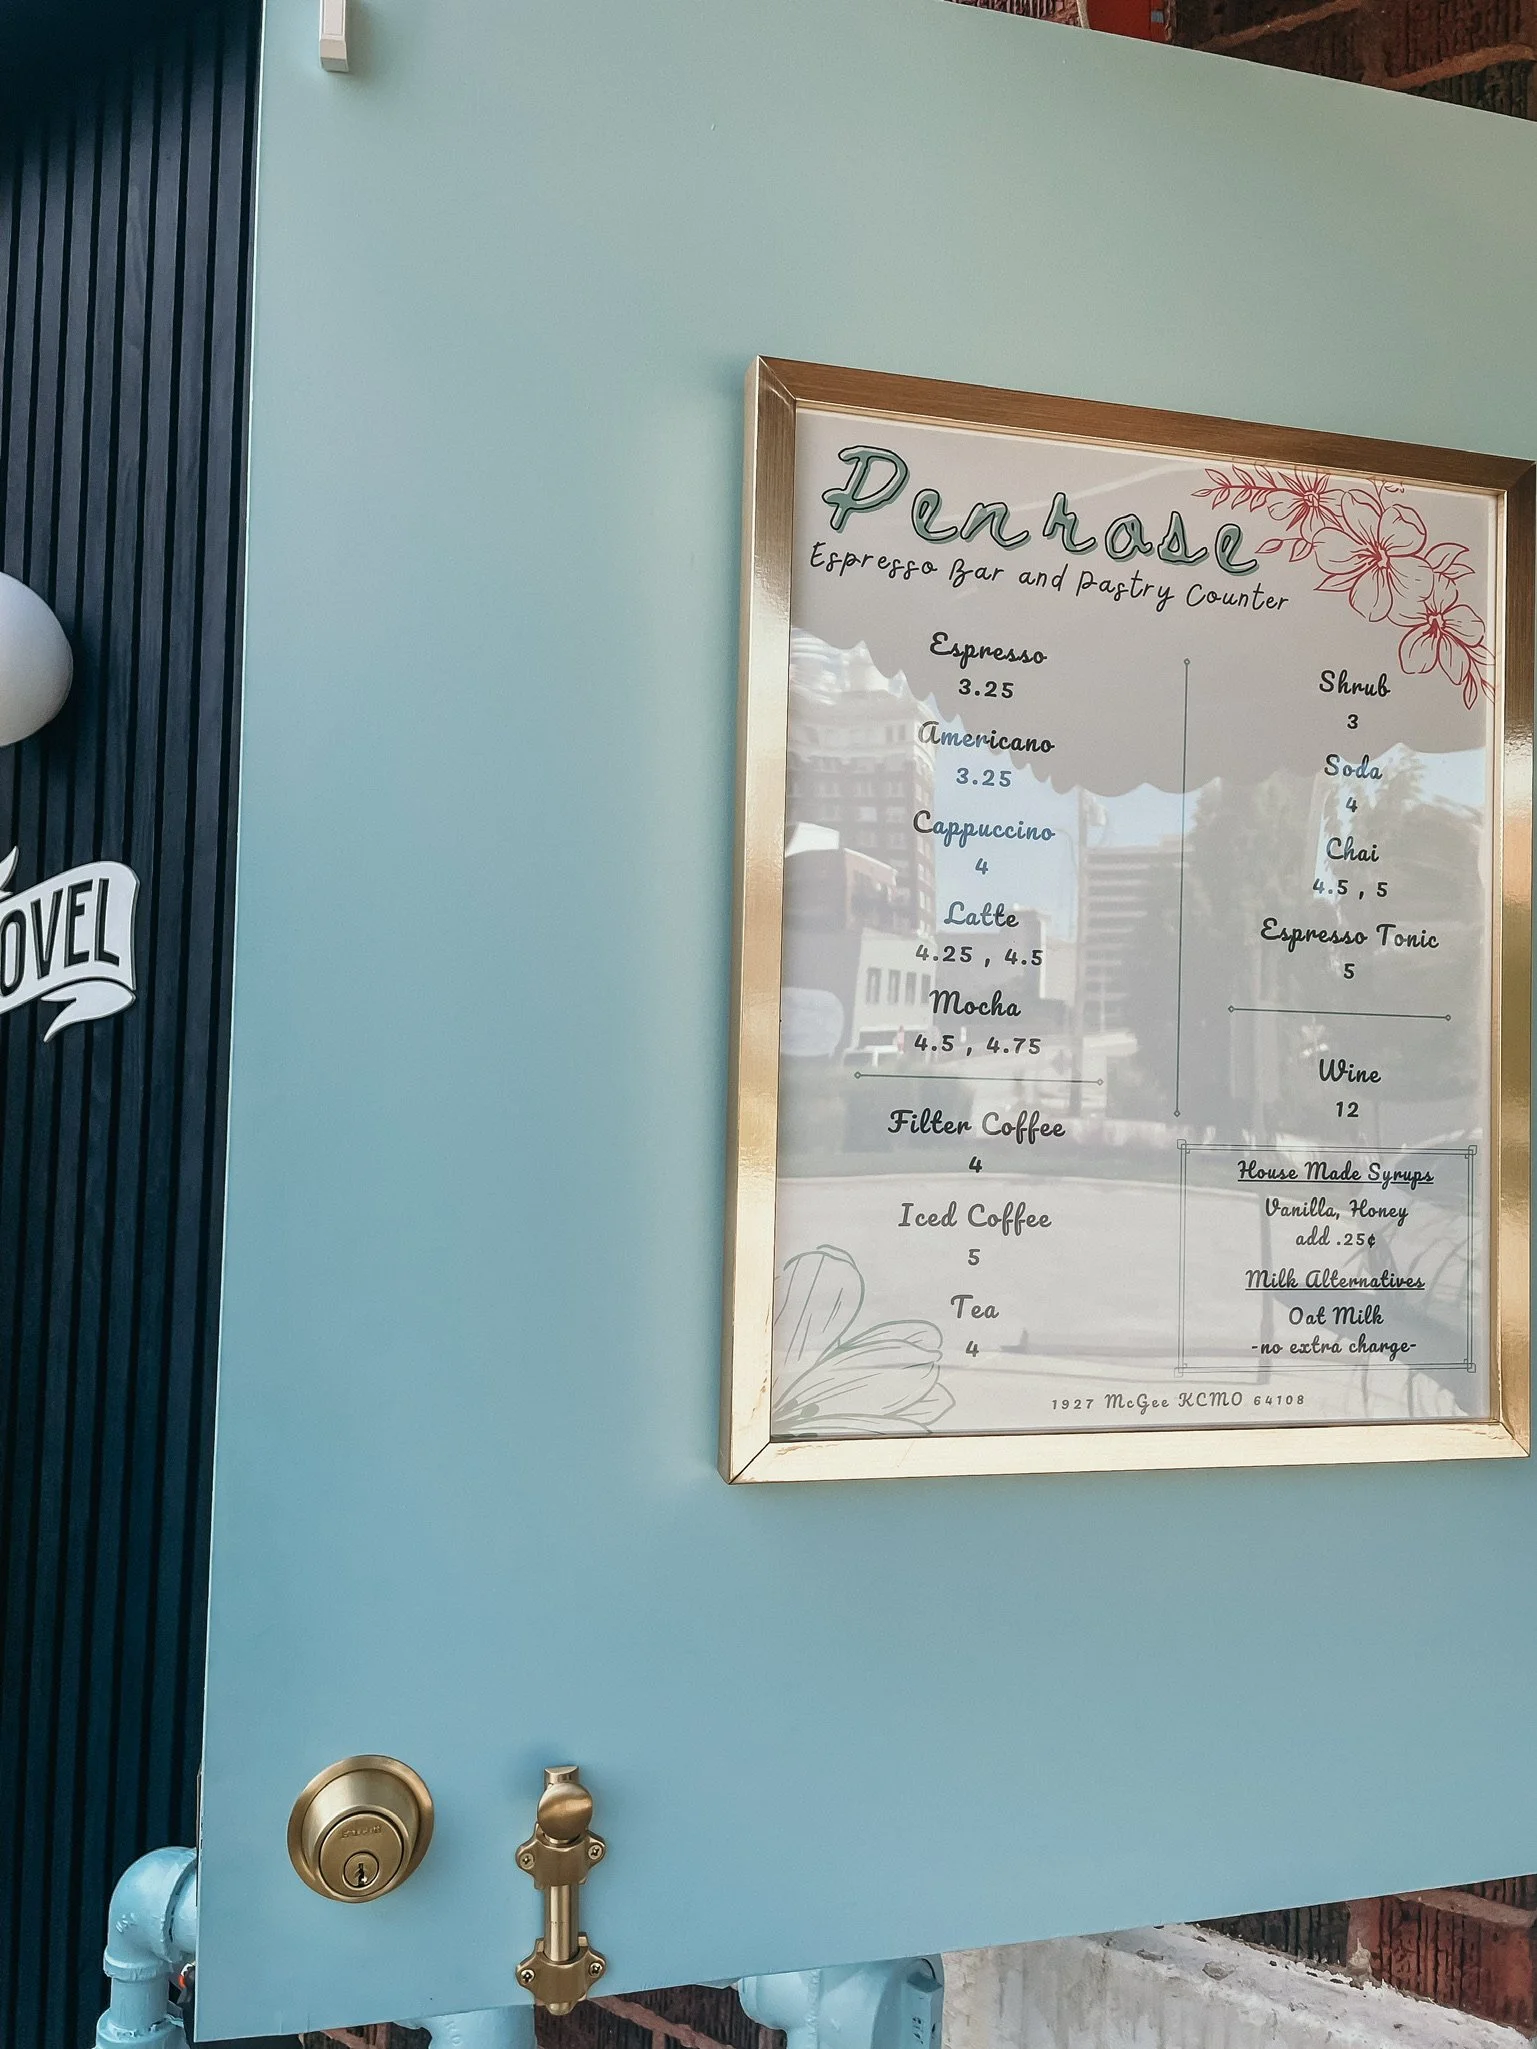 OVEL
Penrose
Espresso Bar and Pastry Counter
Espresso
3.25
Americano
3.25
Cappuccino
4
Latte
4.25 , 4.5
Mocha
4.5 , 4.75
Filter Coffee
4
Iced Coffee
5
Tea
4
Shrub
3
Soda
4
Chai
4.5 , 5
Espresso Tonic
5
Wine
12
House Made Syrups
Vanilla, Honey
add .25¢
Milk Alternatives
Oat Milk
-no extra charge-
1927 McGee KCMO 64108